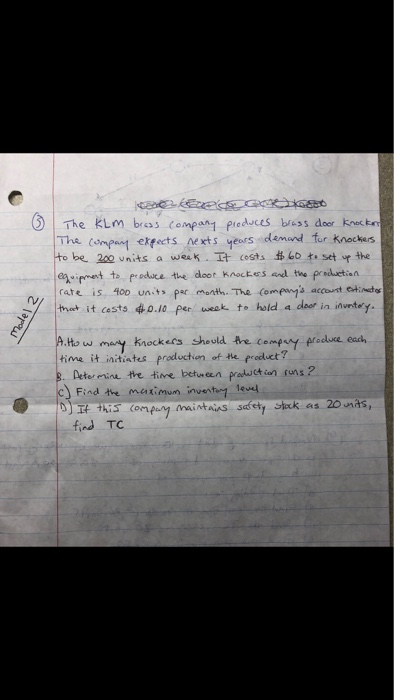 ③ The KLM brass company produces brass door knockers
The company expects nexts years demand for knockers
to be 200 units a week. It costs $60 to set up the
equipment to produce the door knockers and the production
rate is 400 units per month. The company's account estimates
that it costs $0.10 per week to hold a door in inventory.
Model 2
A. How many knockers should the company produce each
time it initiates production of the product?
B. Determine the time between production runs?
C) Find the maximum inventory level
D) If this company maintains safety stock as 20 units,
find TC